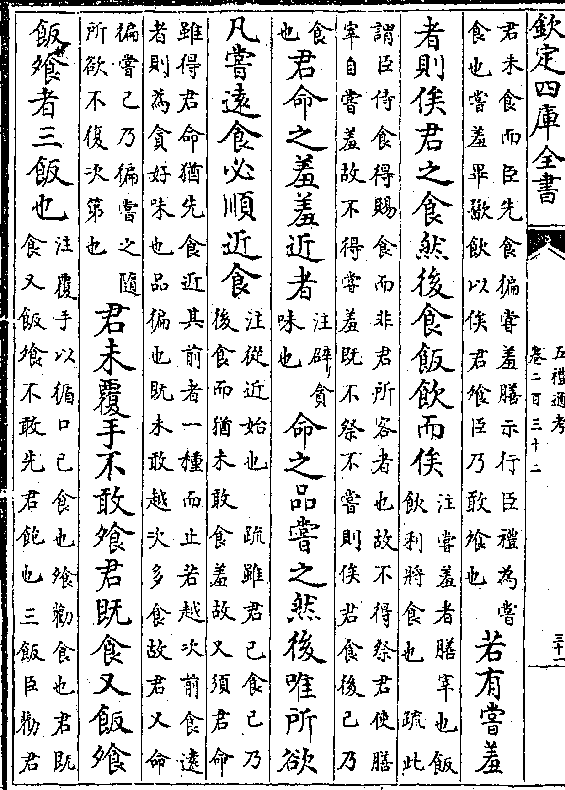 欽定四庫全書
五禮通考
卷二百三十二
三十一
君未食而臣先食徧嘗羞膳示行臣禮為嘗
食也嘗羞畢歠飲以俟君飧臣乃敢飧也
若有嘗羞
者則俟君之食然後食飯飲而俟
注嘗羞者膳宰也飯
飲利將食也 疏此
謂臣侍食得賜食而非君所客者也故不得祭君使膳
宰自嘗羞故不得嘗羞既不祭不嘗則俟君食後己乃
食
也
君命之羞羞近者
注辟貪
味也
命之品嘗之然後唯所欲
凡嘗遠食必順近食
注從近始也 疏雖君已食己乃
後食而猶未敢食羞故又須君命
雖得君命猶先食近其前者一種而止若越次前食遠
者則為貪好味也品徧也既未敢越次多食故君又命
徧嘗己乃徧嘗之隨
所欲不復次第也
君未覆手不敢飧君既食又飯飧
飯飧者三飯也
注覆手以循口已食也飧勸食也君既
食又飯飧不敢先君飽也三飯臣勸君